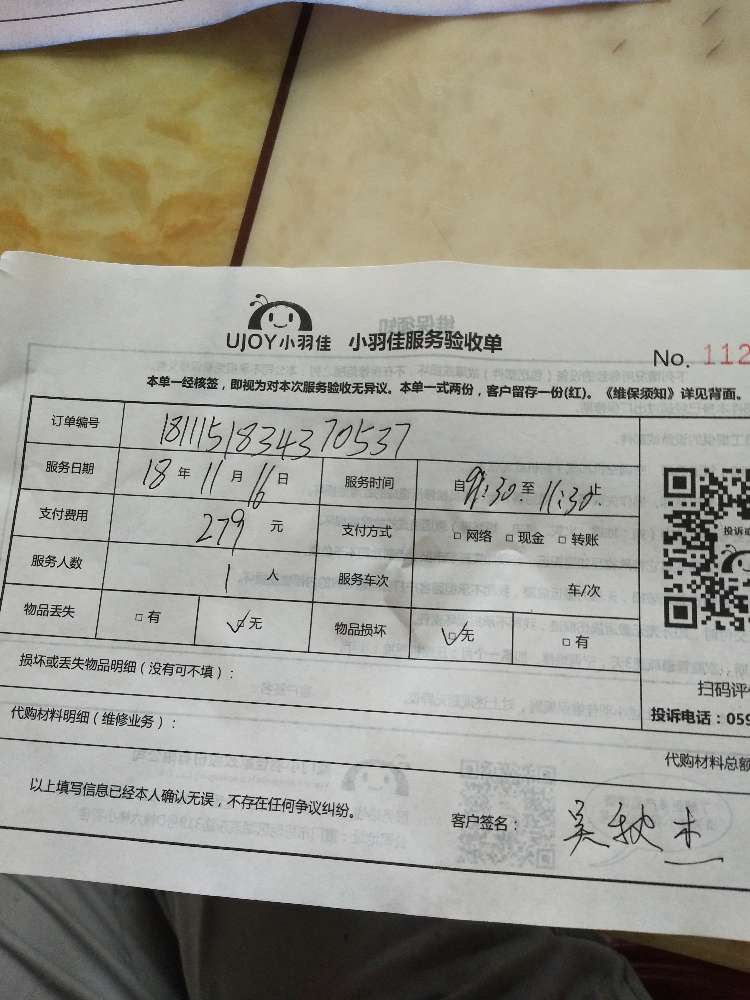 UJOY小羽佳 小羽佳服务验收单
No. 112
本单一经核签，即视为对本次服务验收无异议。本单一式两份，客户留存一份(红)。《维保须知》详见背面。
订单编号 1811151834370537
服务日期 18 年 11 月 16 日 服务时间 自 9:30 至 11:30
支付费用 279 元 支付方式 □ 网络 □ 现金 □ 转账
服务人数 1 人 服务车次 车/次
物品丢失 □ 有 ☑ 无 物品损坏 ☑ 无 □ 有
投诉
扫码评
损坏或丢失物品明细（没有可不填）：
投诉电话：059
代购材料明细（维修业务）：
代购材料总额
以上填写信息已经本人确认无误，不存在任何争议纠纷。
客户签名：吴秋杰